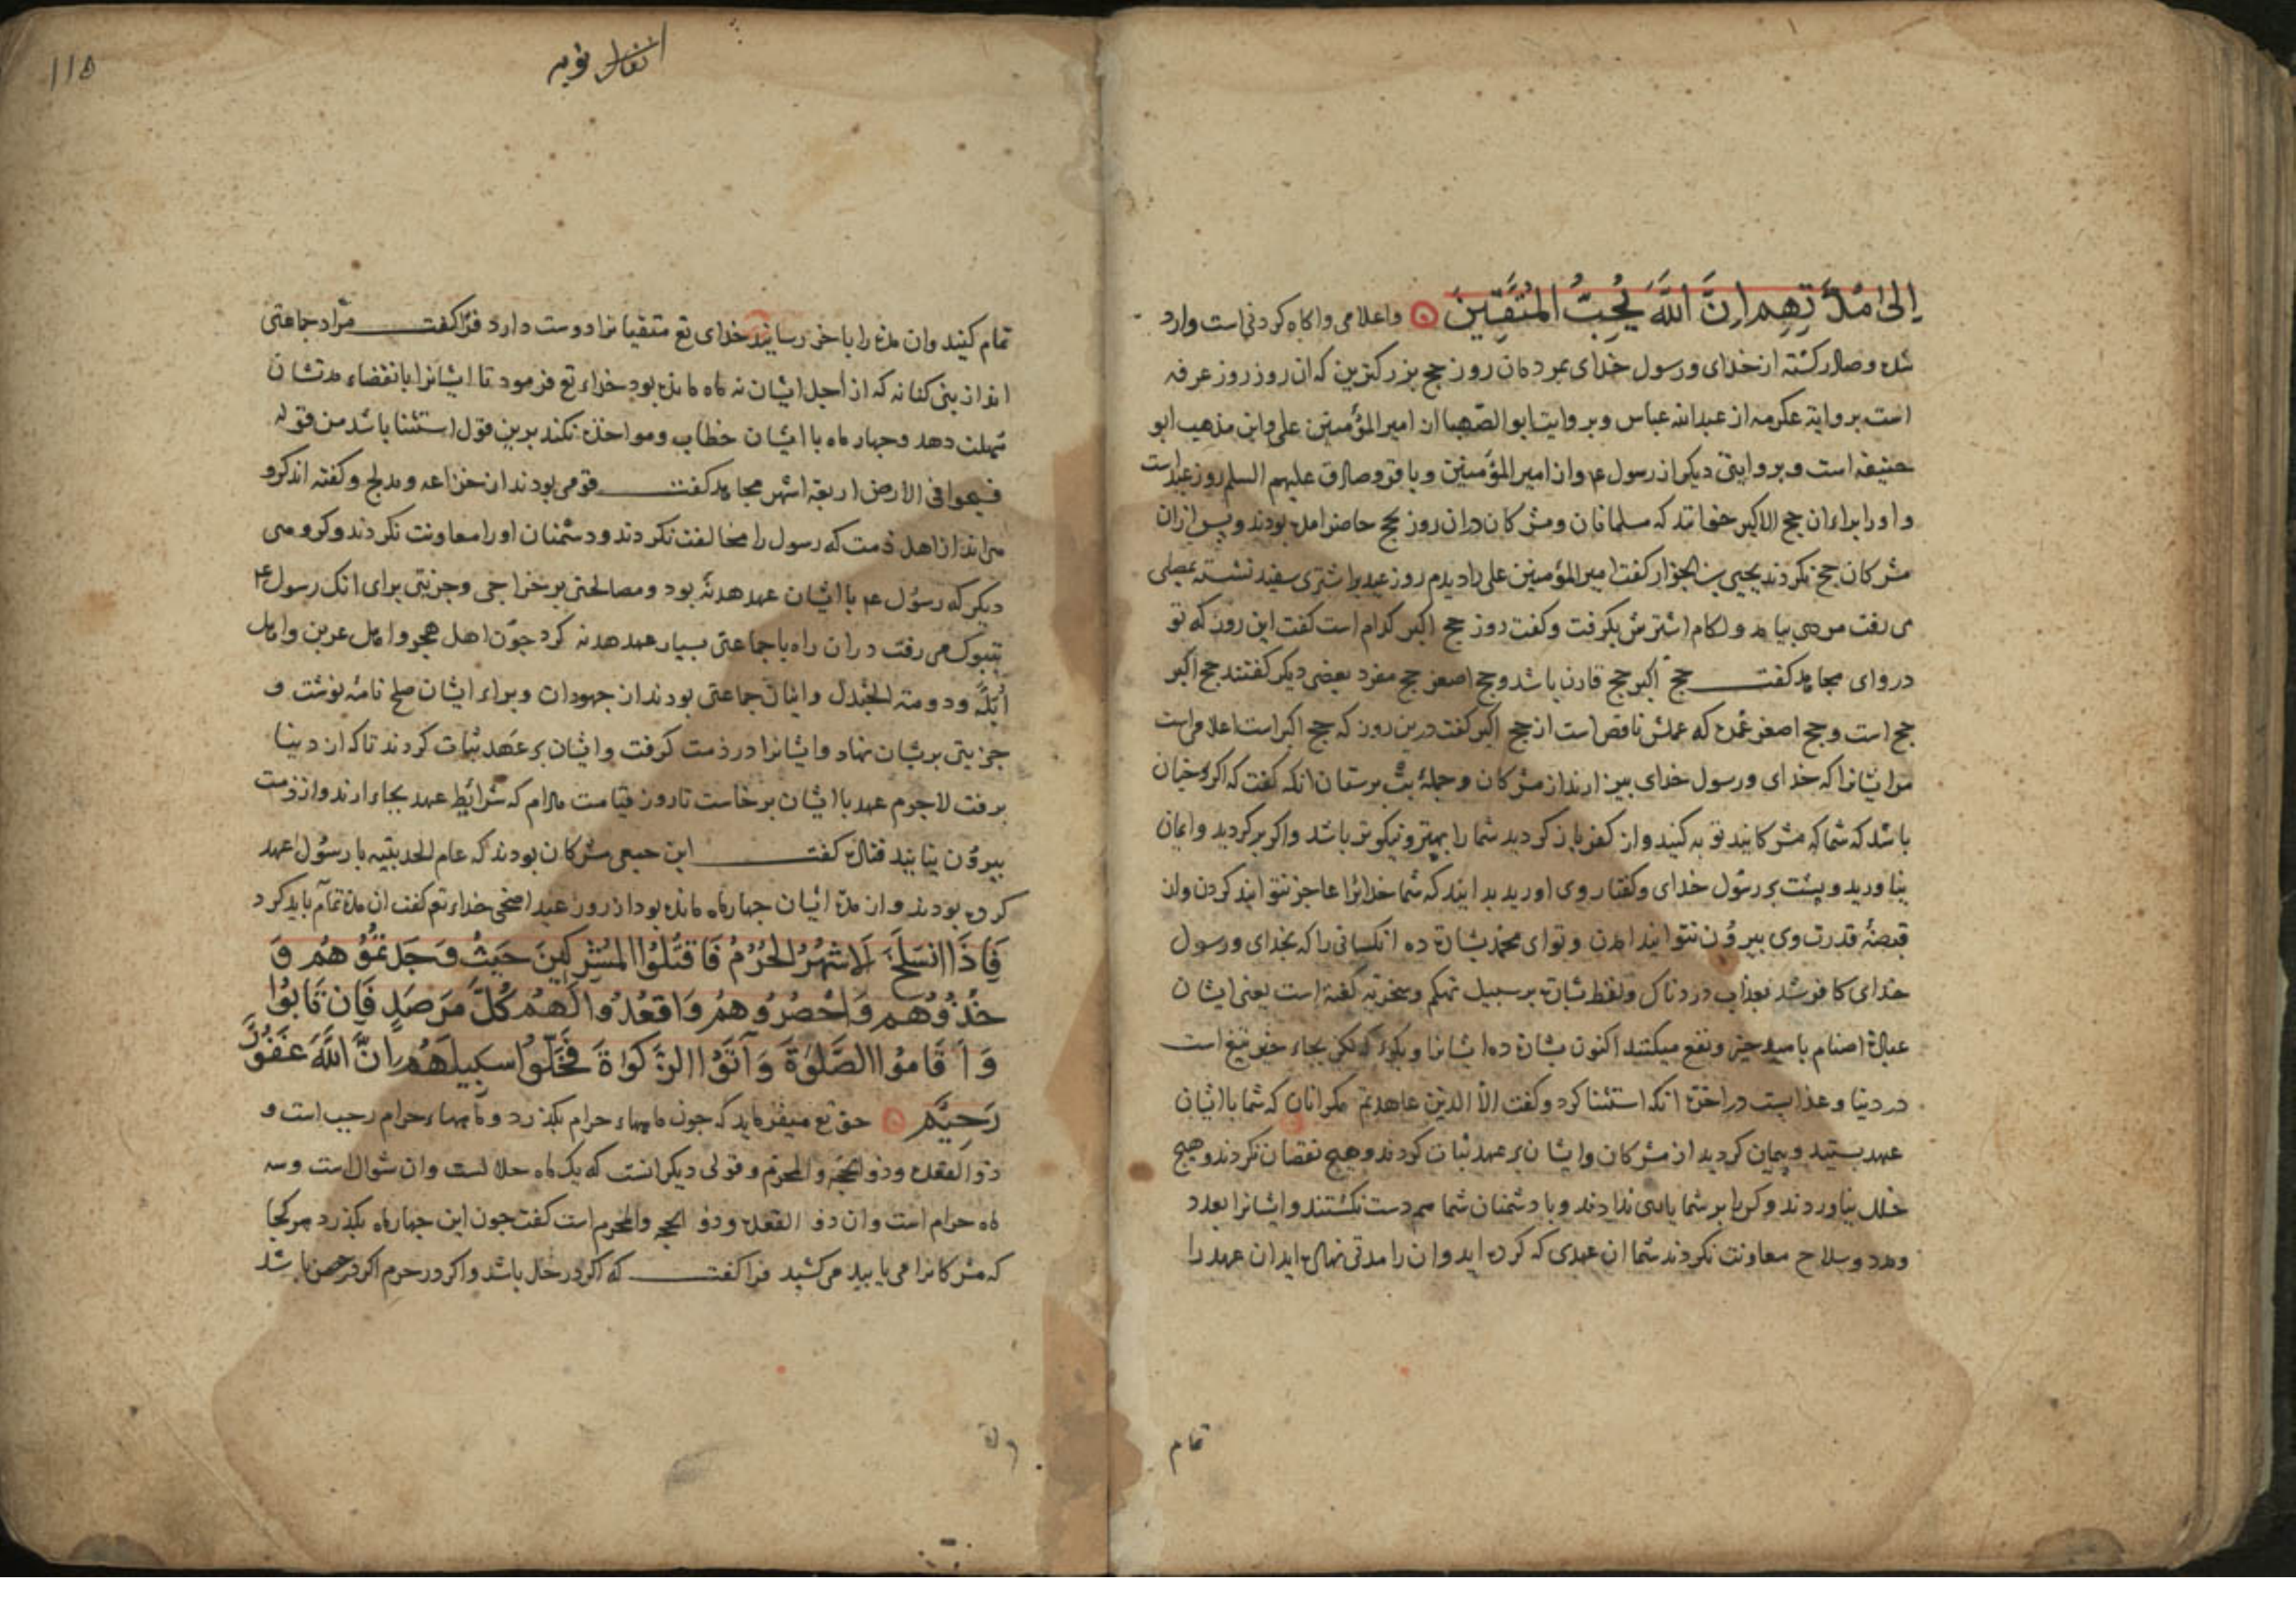 إلى مدتهم إن الله يحب المتقين واعلامی واکاه کردنی است وارد
شده وصادر کشته از خدای ورسول خدای بمردمان روز حج بزرکترین که ان روز روز عرفه
است بروایة عکرمه از عبدالله عباس وبروایت ابو الصهبا از امیرالمؤمنین علی واین مذهب ابو
حنیفه است وبروایتی دیکر از رسول ع واز امیرالمؤمنین وباقر وصادق علیهم السلم روز عید است
واورا برای ان حج الاکبر خوانند که مسلمانان ومشرکان دران روز بحج حاضر امده بودند وپس ازان
مشرکان حج نکردند یحیی بن الجزار کفت امیرالمؤمنین علی را دیدم روز عید بر اشتری سفید نشسته بمصلی
می رفت مردی بیامد ولکام اشترش بکرفت وکفت روز حج اکبر کدام است کفت این روز که تو
دروای مجاهد کفت حج اکبر حج قارن باشد وحج اصغر حج مفرد بعضی دیکر کفتند حج اکبر
حج است وحج اصغر عمره که عملش ناقص است از حج اکبر کفت درین روز که حج اکبر است اعلامی است
مر ایشانرا که خدای ورسول خدای بیزارند از مشرکان وجملۀ بت پرستان انکه کفت که اکر چنان
باشد که شما که مشرکانید توبه کنید واز کفر باز کردید شما را بهتر ونیکوتر باشد واکر بر کردید وایمان
نیاورید وپشت بر رسول خدای وکفتار وی اورید بدانید که شما خدایرا عاجز نتوانید کردن واز
قبضۀ قدرت وی بیرون نتوانید امدن وتو ای محمد بشارة ده انکسانی را که بخدای ورسول
خدای کافر شدند بعذاب دردناک ولفظ بشارت بر سبیل تهکم وسخریه کفته است یعنی ایشان
عبادة اصنام بامید خیر ونفع میکنند اکنون بشارة ده ایشانرا وبکوی که بجاء خیر تیغ است
در دنیا وعذابست در اخرت انکه استثنا کرد وکفت الا الذین عاهدتم مکر انان که شما با ایشان
عهد بستید وپیمان کردید از مشرکان وایشان بر عهد ثبات کردند وهیچ نقصان نکردند وهیچ
خلل نیاوردند وکس را بر شما یاری ندادند وبا دشمنان شما هم دست نکشتند وایشانرا بعدد
ومدد وسلاح معاونت نکردند شما ان عهدی که کرده اید وان را مدتی نهاده اید ان عهد را
تمام
انفال توبه
١١٥
تمام کنید وان مدة را باخر رسانید خدای تع متقیانرا دوست دارد فرا کفت مراد جماعتی
اند از بنی کنانه که از اجل ایشان نه ماه مانده بود خداء تع فرمود تا ایشانرا بانقضاء مدتشان
مهلت دهد وچهار ماه با ایشان خطاب ومواخذه نکند برین قول استثنا باشد من قوله
فسیحوا فی الارض اربعة اشهر مجاهد کفت قومی بودند از خزاعه ومدلج وکفته اند کروهی
اند از اهل ذمت که رسول را مخالفت نکردند ودشمنان اورا معاونت نکردند وکروهی
دیکر که رسول ع با ایشان عهد هدنه بود ومصالحتی بر خراجی وجزیتی برای انک رسول ع
بتبوک می رفت دران راه با جماعتی بسیار عهد هدنه کرد چون اهل هجر واهل بحرین واهل
ایله ودومة الجندل واینان جماعتی بودند از جهودان وبراء ایشان صلح نامه نوشت و
جزیتی بریشان نهاد وایشانرا در ذمت کرفت وایشان بر عهد ثبات کردند تا که از دنیا
برفت لاجرم عهد با ایشان برخاست تا روز قیامت مادام که شرایط عهد بجاء ارند واز ذمت
بیرون نیایند قتاده کفت این جمعی مشرکان بودند که عام الحدیبیه با رسول عهد
کرده بودند واز مدة ایشان چهار ماه مانده بود از روز عید اضحی خداء تع کفت ان مدة تمام باید کرد
فإذا انسلخ الاشهر الحرم فاقتلوا المشركين حيث وجدتموهم و
خذوهم واحصروهم واقعدوا لهم كل مرصد فإن تابوا
وأقاموا الصلوة وآتوا الزكوة فخلوا سبيلهم إن الله غفور
رحيم حق تع میفرماید که چون ماههاء حرام بکذرد وماههاء حرام رجب است و
ذو القعده وذو الحجه والمحرم وقولی دیکر انست که یک ماه حلالست وان شوال است وسه
ماه حرام است وان ذو القعده وذو الحجه والمحرم است کفت چون این چهار ماه بکذرد هر کجا
که مشرکانرا می یابید می کشید فرا کفت که اکر در حل باشد واکر در حرم اکر در حصن باشد